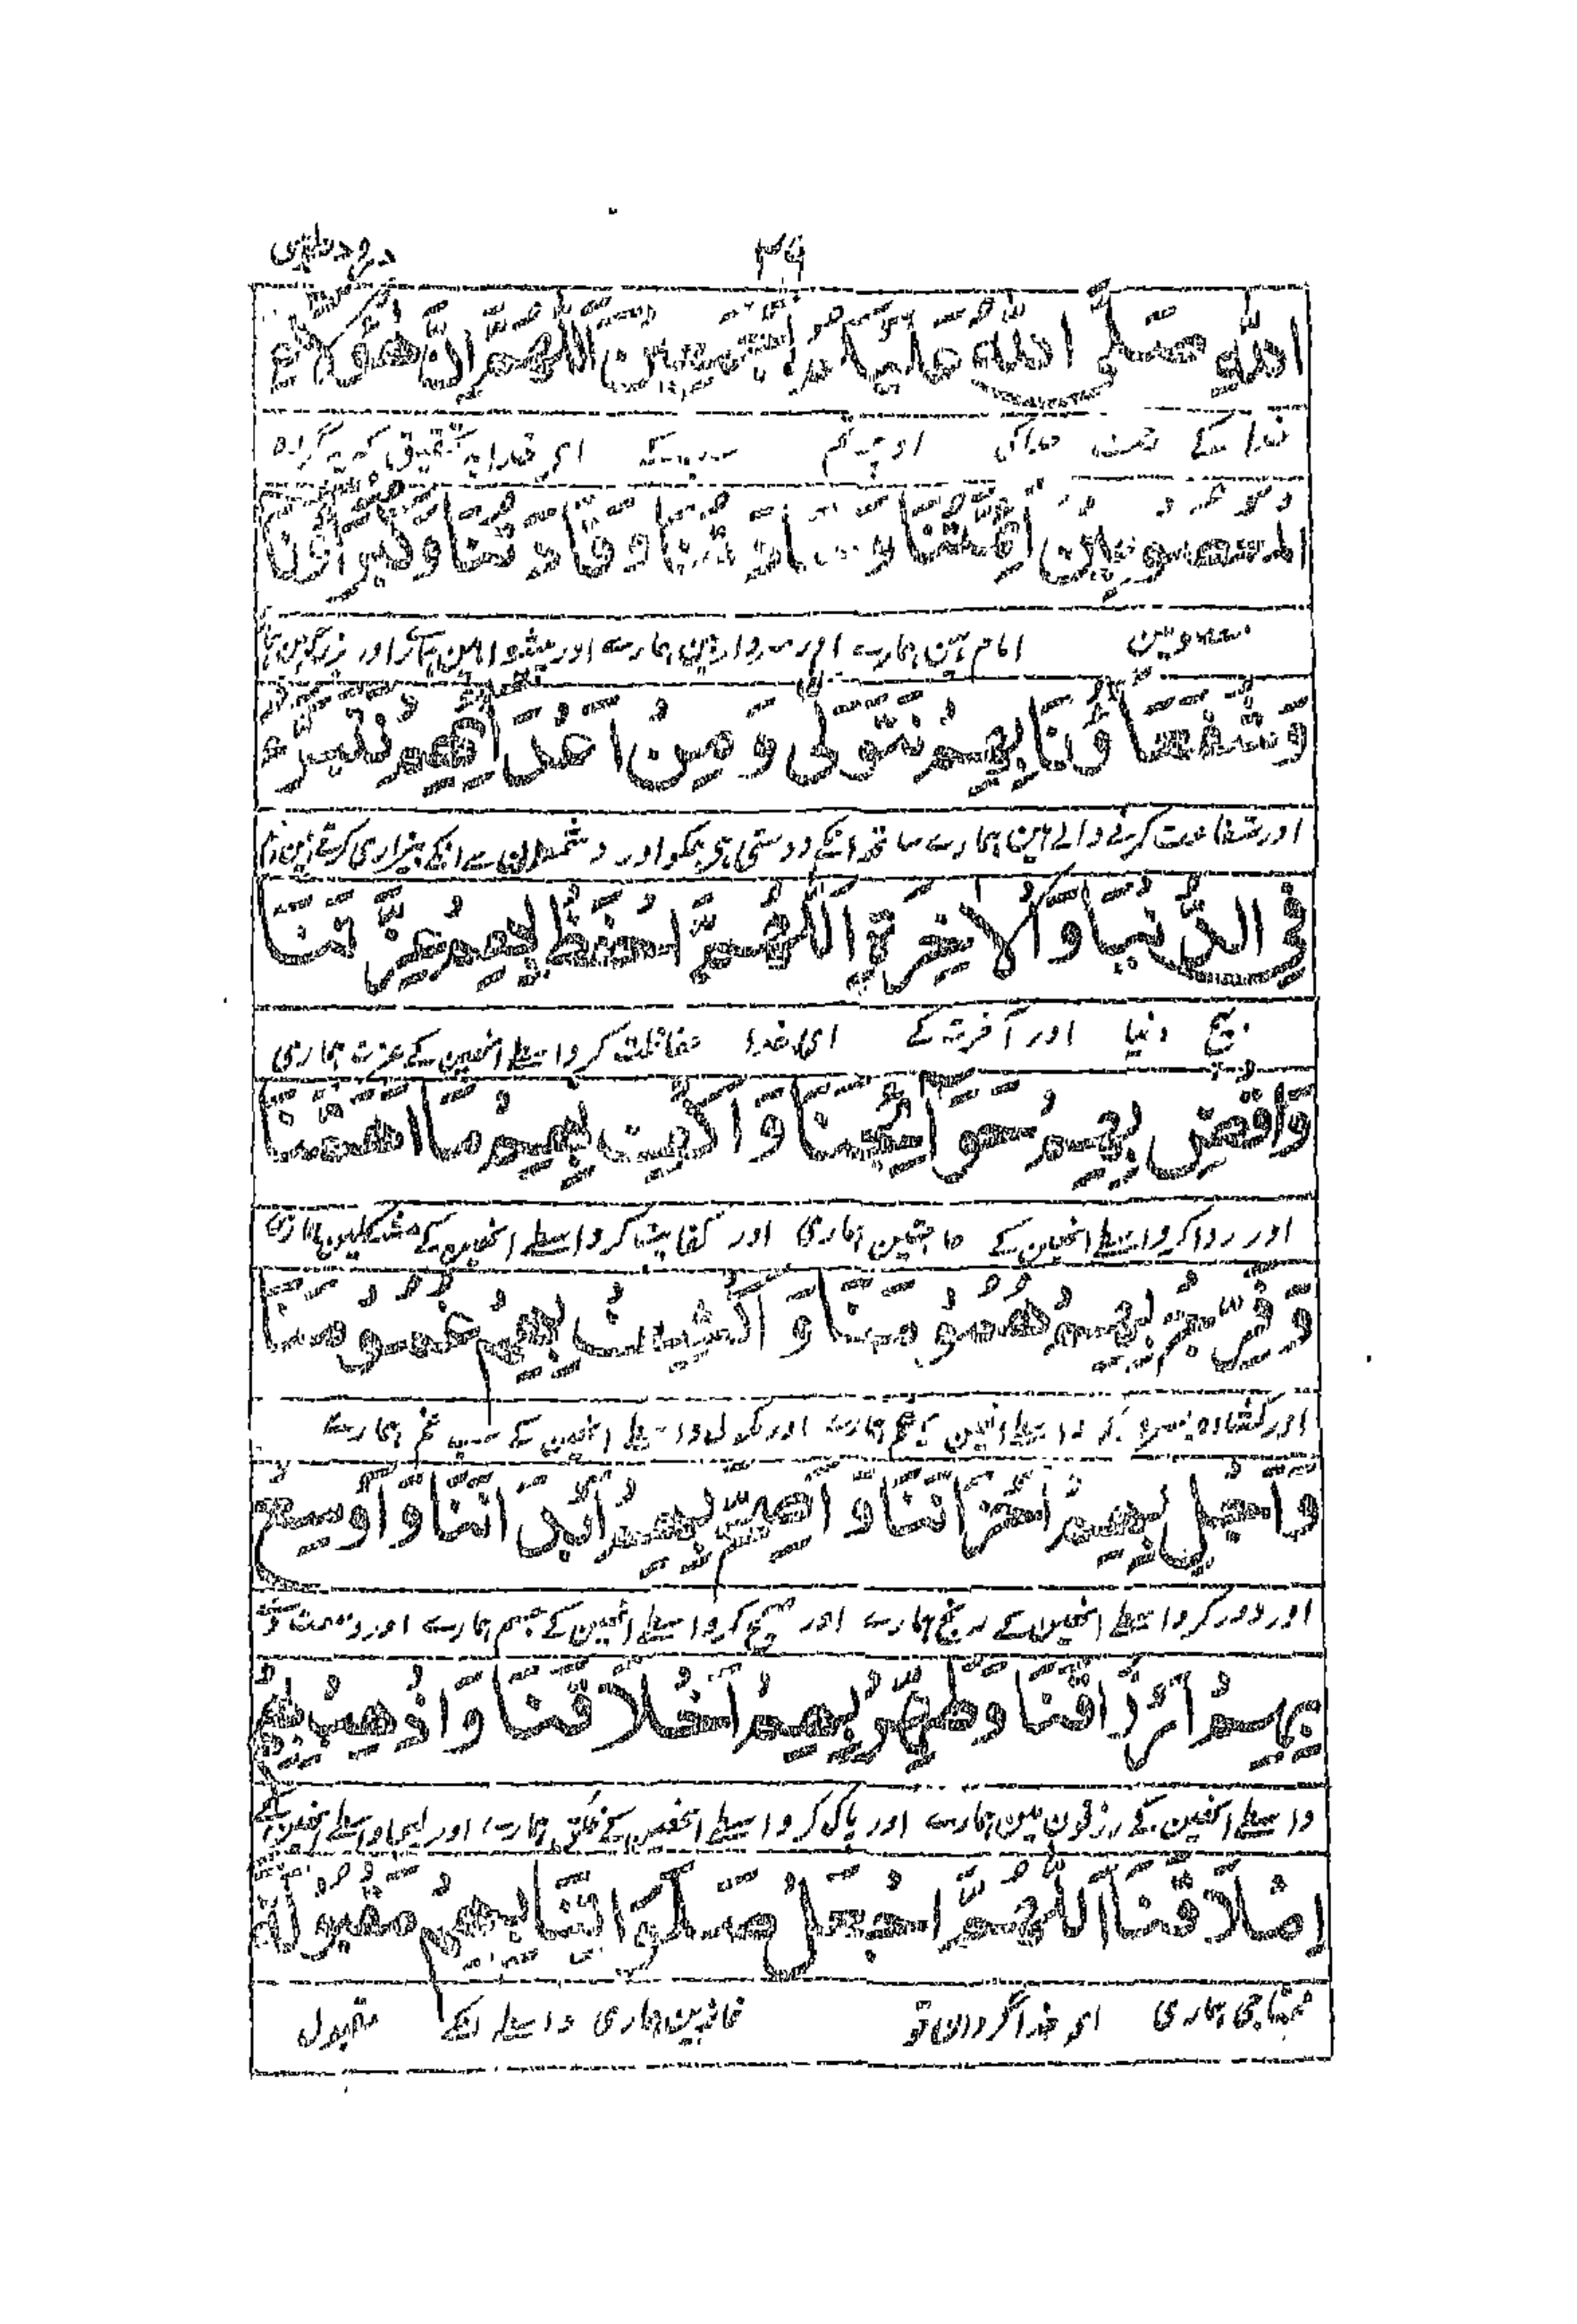 ۳۶
اللّٰهِ صَلَّی اللّٰهُ عَلَیْکُمْ اَجْمَعِیْنَ اَللّٰهُمَّ اِنَّ هٰؤُلَآءِ
خدا کے رحمت خدا کی اوپر تم سب کے ای خدا بہ تحقیق کہ یہ گروہ
الْمَعْصُوْمِیْنَ اَئِمَّتُنَا وَسَادَتُنَا وَقَادَتُنَا وَکُبَرَاؤُنَا
معصومین امام ہین ہمارے اور سردار ہین ہمارے اور پیشوا ہین ہمارے اور بزرگ ہین
وَشُفَعَاؤُنَا بِهِمْ نَتَوَلّٰی وَمِنْ اَعْدَآئِهِمْ نَتَبَرَّءُ
اور شفاعت کرنے والے ہین ہمارے ساتھ انکے دوستی ہی ہمکو اور دشمنون سے انکے بیزاری کرتے ہین ہم
فِی الدُّنْیَا وَالْاٰخِرَةِ اَللّٰهُمَّ احْفَظْ بِهِمْ عِزَّتَنَا
بیچ دنیا اور آخرت کے ای خدا حفاظت کر واسطے انھین کے عزت ہماری
وَاقْضِ بِهِمْ حَوَآئِجَنَا وَاکْفِ بِهِمْ مَا اَهَمَّنَا
اور روا کر واسطے انھین کے حاجتین ہماری اور کفایت کر واسطے انھین کے مشکلین ہماری
وَفَرِّجْ بِهِمْ هُمُوْمَنَا وَاکْشِفْ بِهِمْ غُمُوْمَنَا
اور کشادہ کر واسطے انھین کے ہمارے اور کھول واسطے انھین کے سب غم ہمارے
وَاَجْلِ بِهِمْ اَحْزَانَنَا وَاَصِحَّ بِهِمْ اَبْدَانَنَا وَاَوْسِعْ
اور دور کر واسطے انھین کے رنج ہمارے اور صحیح کر واسطے انھین کے جسم ہمارے اور وسعت
بِهِمْ اَرْزَاقَنَا وَطَهِّرْ بِهِمْ اَخْلَاقَنَا وَاذْهِبْ بِهِمْ
واسطے انھین کے رزقون مین ہمارے اور پاک کر واسطے انھین کے خلق ہمارے اور لیجا واسطے انھین کے
اِمْلَاقَنَا اَللّٰهُمَّ اجْعَلْ صَلَوَاتِنَا بِهِمْ مَقْبُوْلَةً
محتاجی ہماری ای خدا گردان تو نمازین ہماری واسطے انکے مقبول